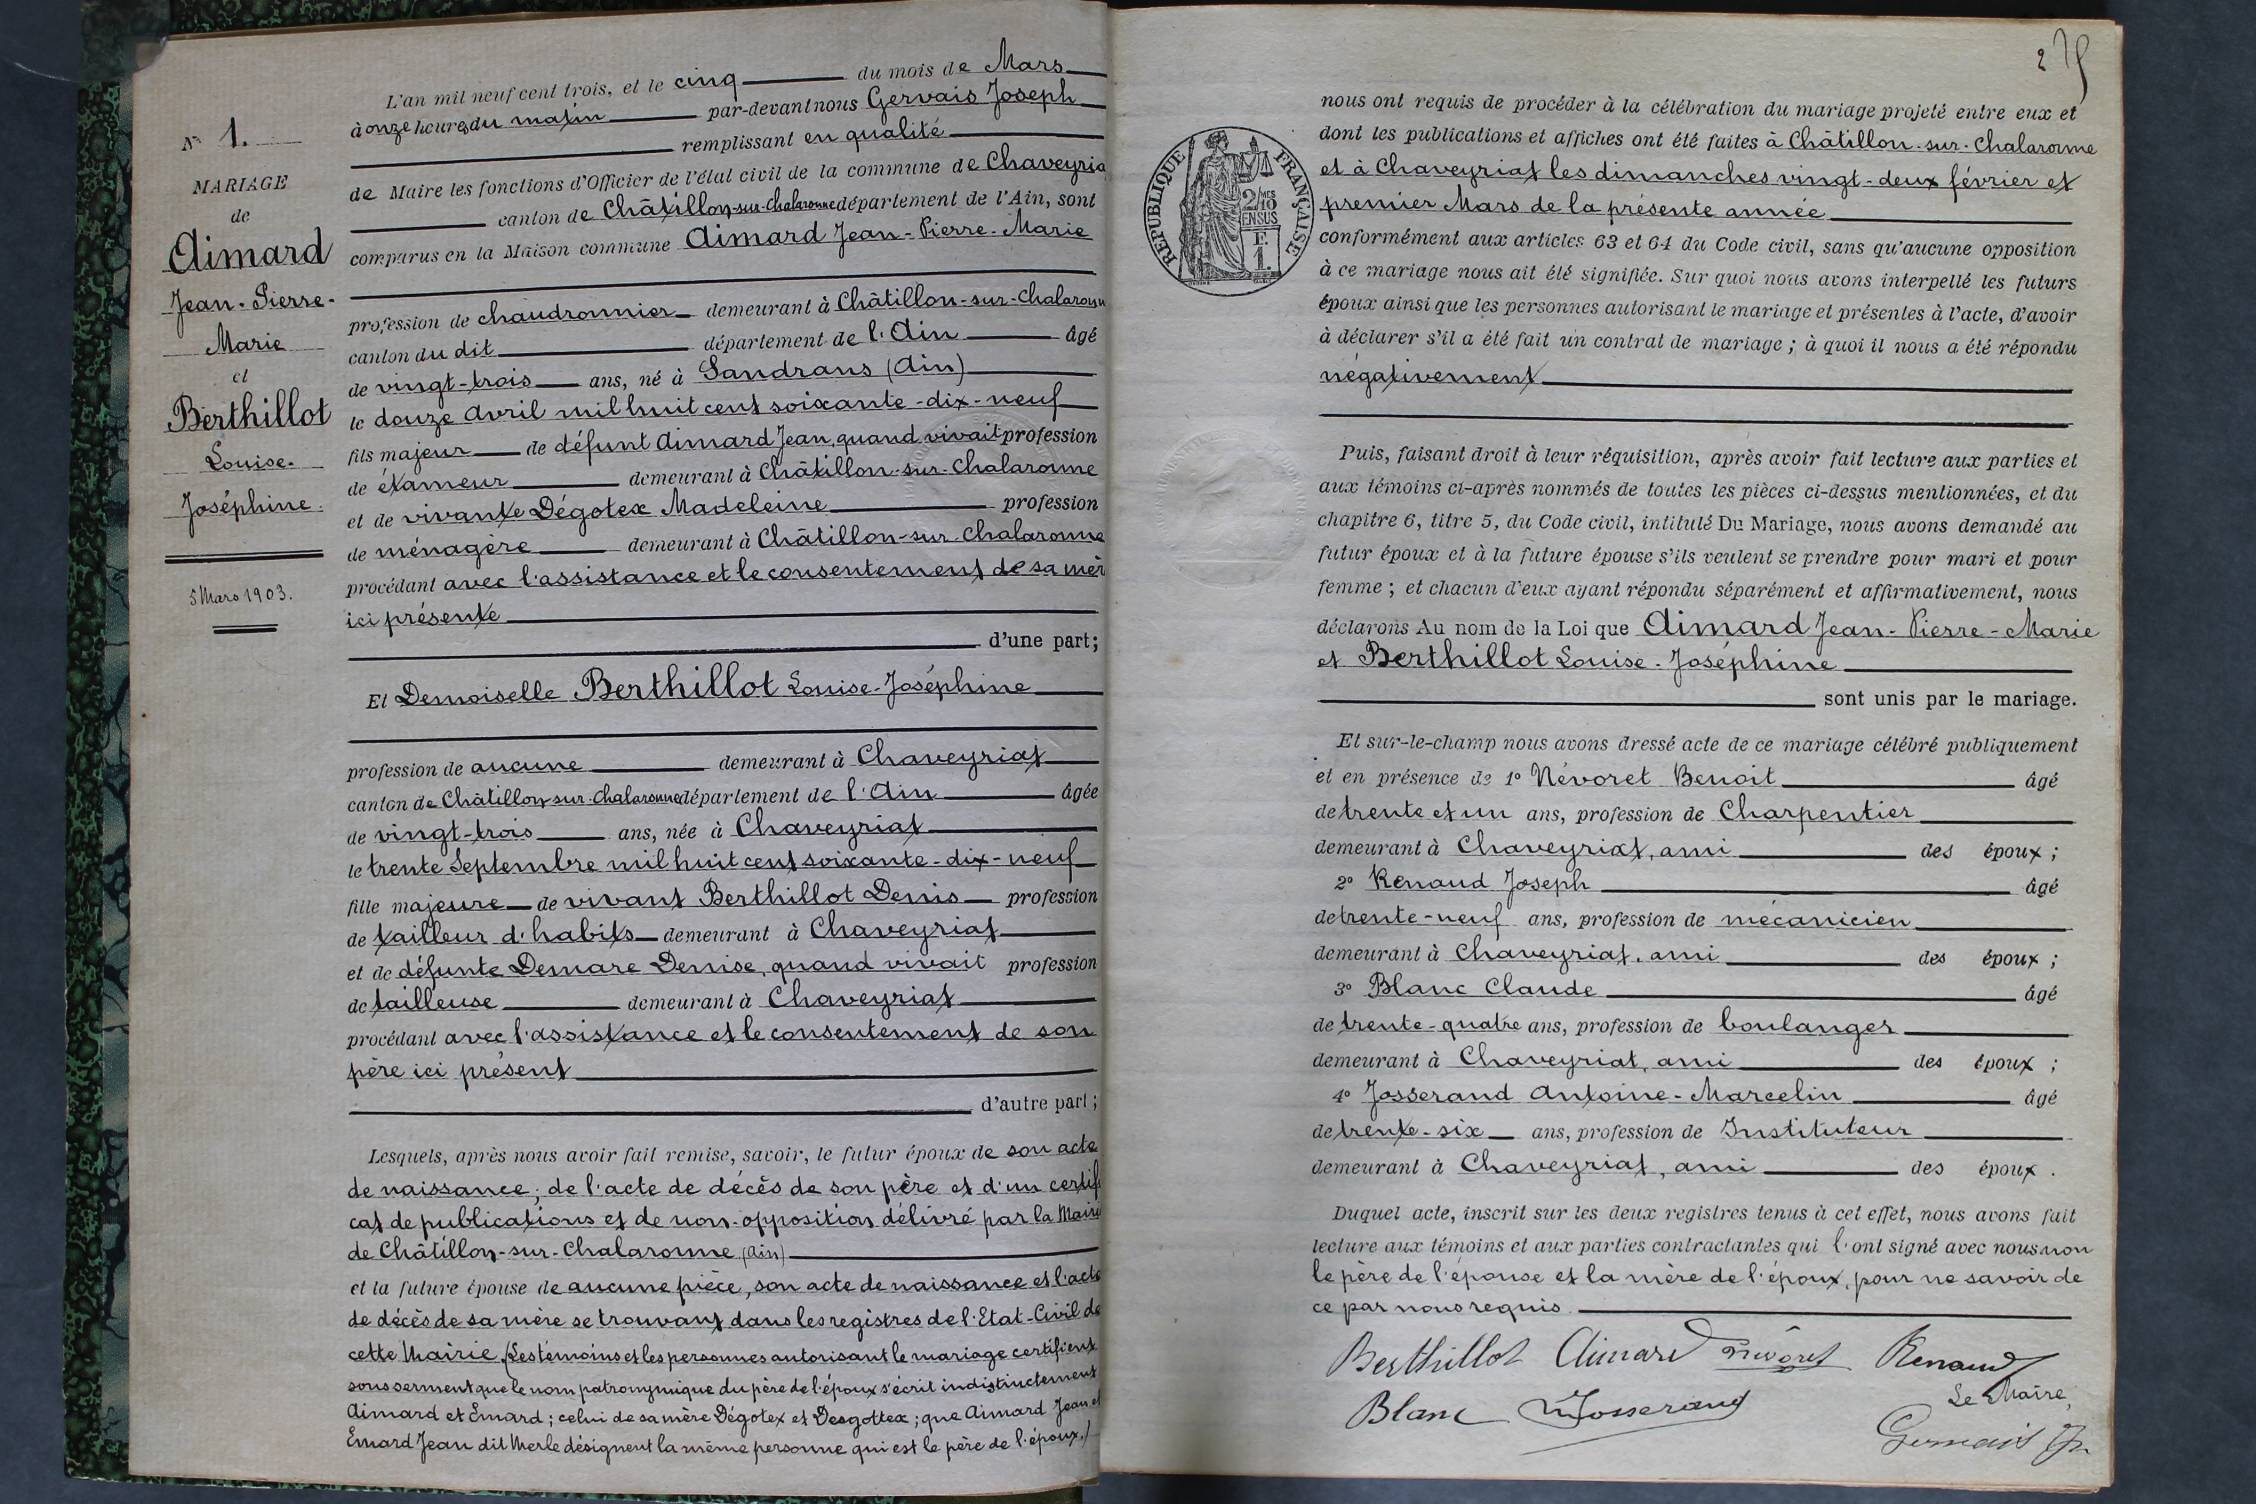 N° 1.
MARIAGE
de
Aimard
Jean-Pierre-
Marie
et
Berthillot
Louise-
Joséphine.
5 Mars 1903.
L'an mil neuf cent trois, et le cinq du mois de Mars
à onze heures du matin par-devant nous Gervais Joseph
remplissant en qualité
de Maire les fonctions d'Officier de l'état civil de la commune de Chaveyria
canton de Châtillon-sur-Chalaronne département de l'Ain, sont
comparus en la Maison commune Aimard Jean-Pierre-Marie
profession de chaudronnier demeurant à Châtillon-sur-Chalaronn
canton du dit département de l'Ain âgé
de vingt-trois ans, né à Sandrans (Ain)
le douze Avril mil huit cent soixante-dix-neuf
fils majeur de défunt Aimard Jean, quand vivait profession
de étameur demeurant à Châtillon-sur-Chalaronne
et de vivante Dégotex Madeleine profession
de ménagère demeurant à Châtillon-sur-Chalaronne
procédant avec l'assistance et le consentement de sa mèr
ici présente
d'une part;
Et Demoiselle Berthillot Louise-Joséphine
profession de aucune demeurant à Chaveyriat
canton de Châtillon-sur-Chalaronne département de l'Ain âgée
de vingt-trois ans, née à Chaveyriat
le trente Septembre mil huit cent soixante-dix-neuf
fille majeure de vivant Berthillot Denis profession
de tailleur d'habits demeurant à Chaveyriat
et de défunte Demare Denise, quand vivait profession
de tailleuse demeurant à Chaveyriat
procédant avec l'assistance et le consentement de son
père ici présent
d'autre part;
Lesquels, après nous avoir fait remise, savoir, le futur époux de son acte
de naissance; de l'acte de décès de son père et d'un certifi
cat de publications et de non-opposition délivré par la Mairie
de Châtillon-sur-Chalaronne (Ain)
et la future épouse de aucune pièce, son acte de naissance et l'acte
de décès de sa mère se trouvant dans les registres de l'Etat-Civil de
cette Mairie. (Les témoins et les personnes autorisant le mariage certifient
sous serment que le nom patronymique du père de l'époux s'écrit indistinctement
Aimard et Emard; celui de sa mère Dégotex et Desgottex; que Aimard Jean et
Emard Jean dit Merle désignent la même personne qui est le père de l'époux.)
2
RÉPUBLIQUE FRANÇAISE
2/10
MES
EN SUS
F.
1.
nous ont requis de procéder à la célébration du mariage projeté entre eux et
dont les publications et affiches ont été faites à Châtillon-sur-Chalaronne
et à Chaveyriat les dimanches vingt-deux février et
premier Mars de la présente année
conformément aux articles 63 et 64 du Code civil, sans qu'aucune opposition
à ce mariage nous ait été signifiée. Sur quoi nous avons interpellé les futurs
époux ainsi que les personnes autorisant le mariage et présentes à l'acte, d'avoir
à déclarer s'il a été fait un contrat de mariage; à quoi il nous a été répondu
négativement
Puis, faisant droit à leur réquisition, après avoir fait lecture aux parties et
aux témoins ci-après nommés de toutes les pièces ci-dessus mentionnées, et du
chapitre 6, titre 5, du Code civil, intitulé Du Mariage, nous avons demandé au
futur époux et à la future épouse s'ils veulent se prendre pour mari et pour
femme; et chacun d'eux ayant répondu séparément et affirmativement, nous
déclarons Au nom de la Loi que Aimard Jean-Pierre-Marie
et Berthillot Louise-Joséphine
sont unis par le mariage.
Et sur-le-champ nous avons dressé acte de ce mariage célébré publiquement
et en présence de 1° Névoret Benoit âgé
de trente et un ans, profession de Charpentier
demeurant à Chaveyriat, ami des époux;
2° Renaud Joseph âgé
de trente-neuf ans, profession de mécanicien
demeurant à Chaveyriat, ami des époux;
3° Blanc Claude âgé
de trente-quatre ans, profession de boulanger
demeurant à Chaveyriat, ami des époux;
4° Josserand Antoine-Marcelin âgé
de trente-six ans, profession de Instituteur
demeurant à Chaveyriat, ami des époux.
Duquel acte, inscrit sur les deux registres tenus à cet effet, nous avons fait
lecture aux témoins et aux parties contractantes qui l'ont signé avec nous non
le père de l'épouse et la mère de l'époux, pour ne savoir de
ce par nous requis.
Berthillot Aimard Névoret Renaud
Blanc Josserand Le Maire,
Gervais Jh